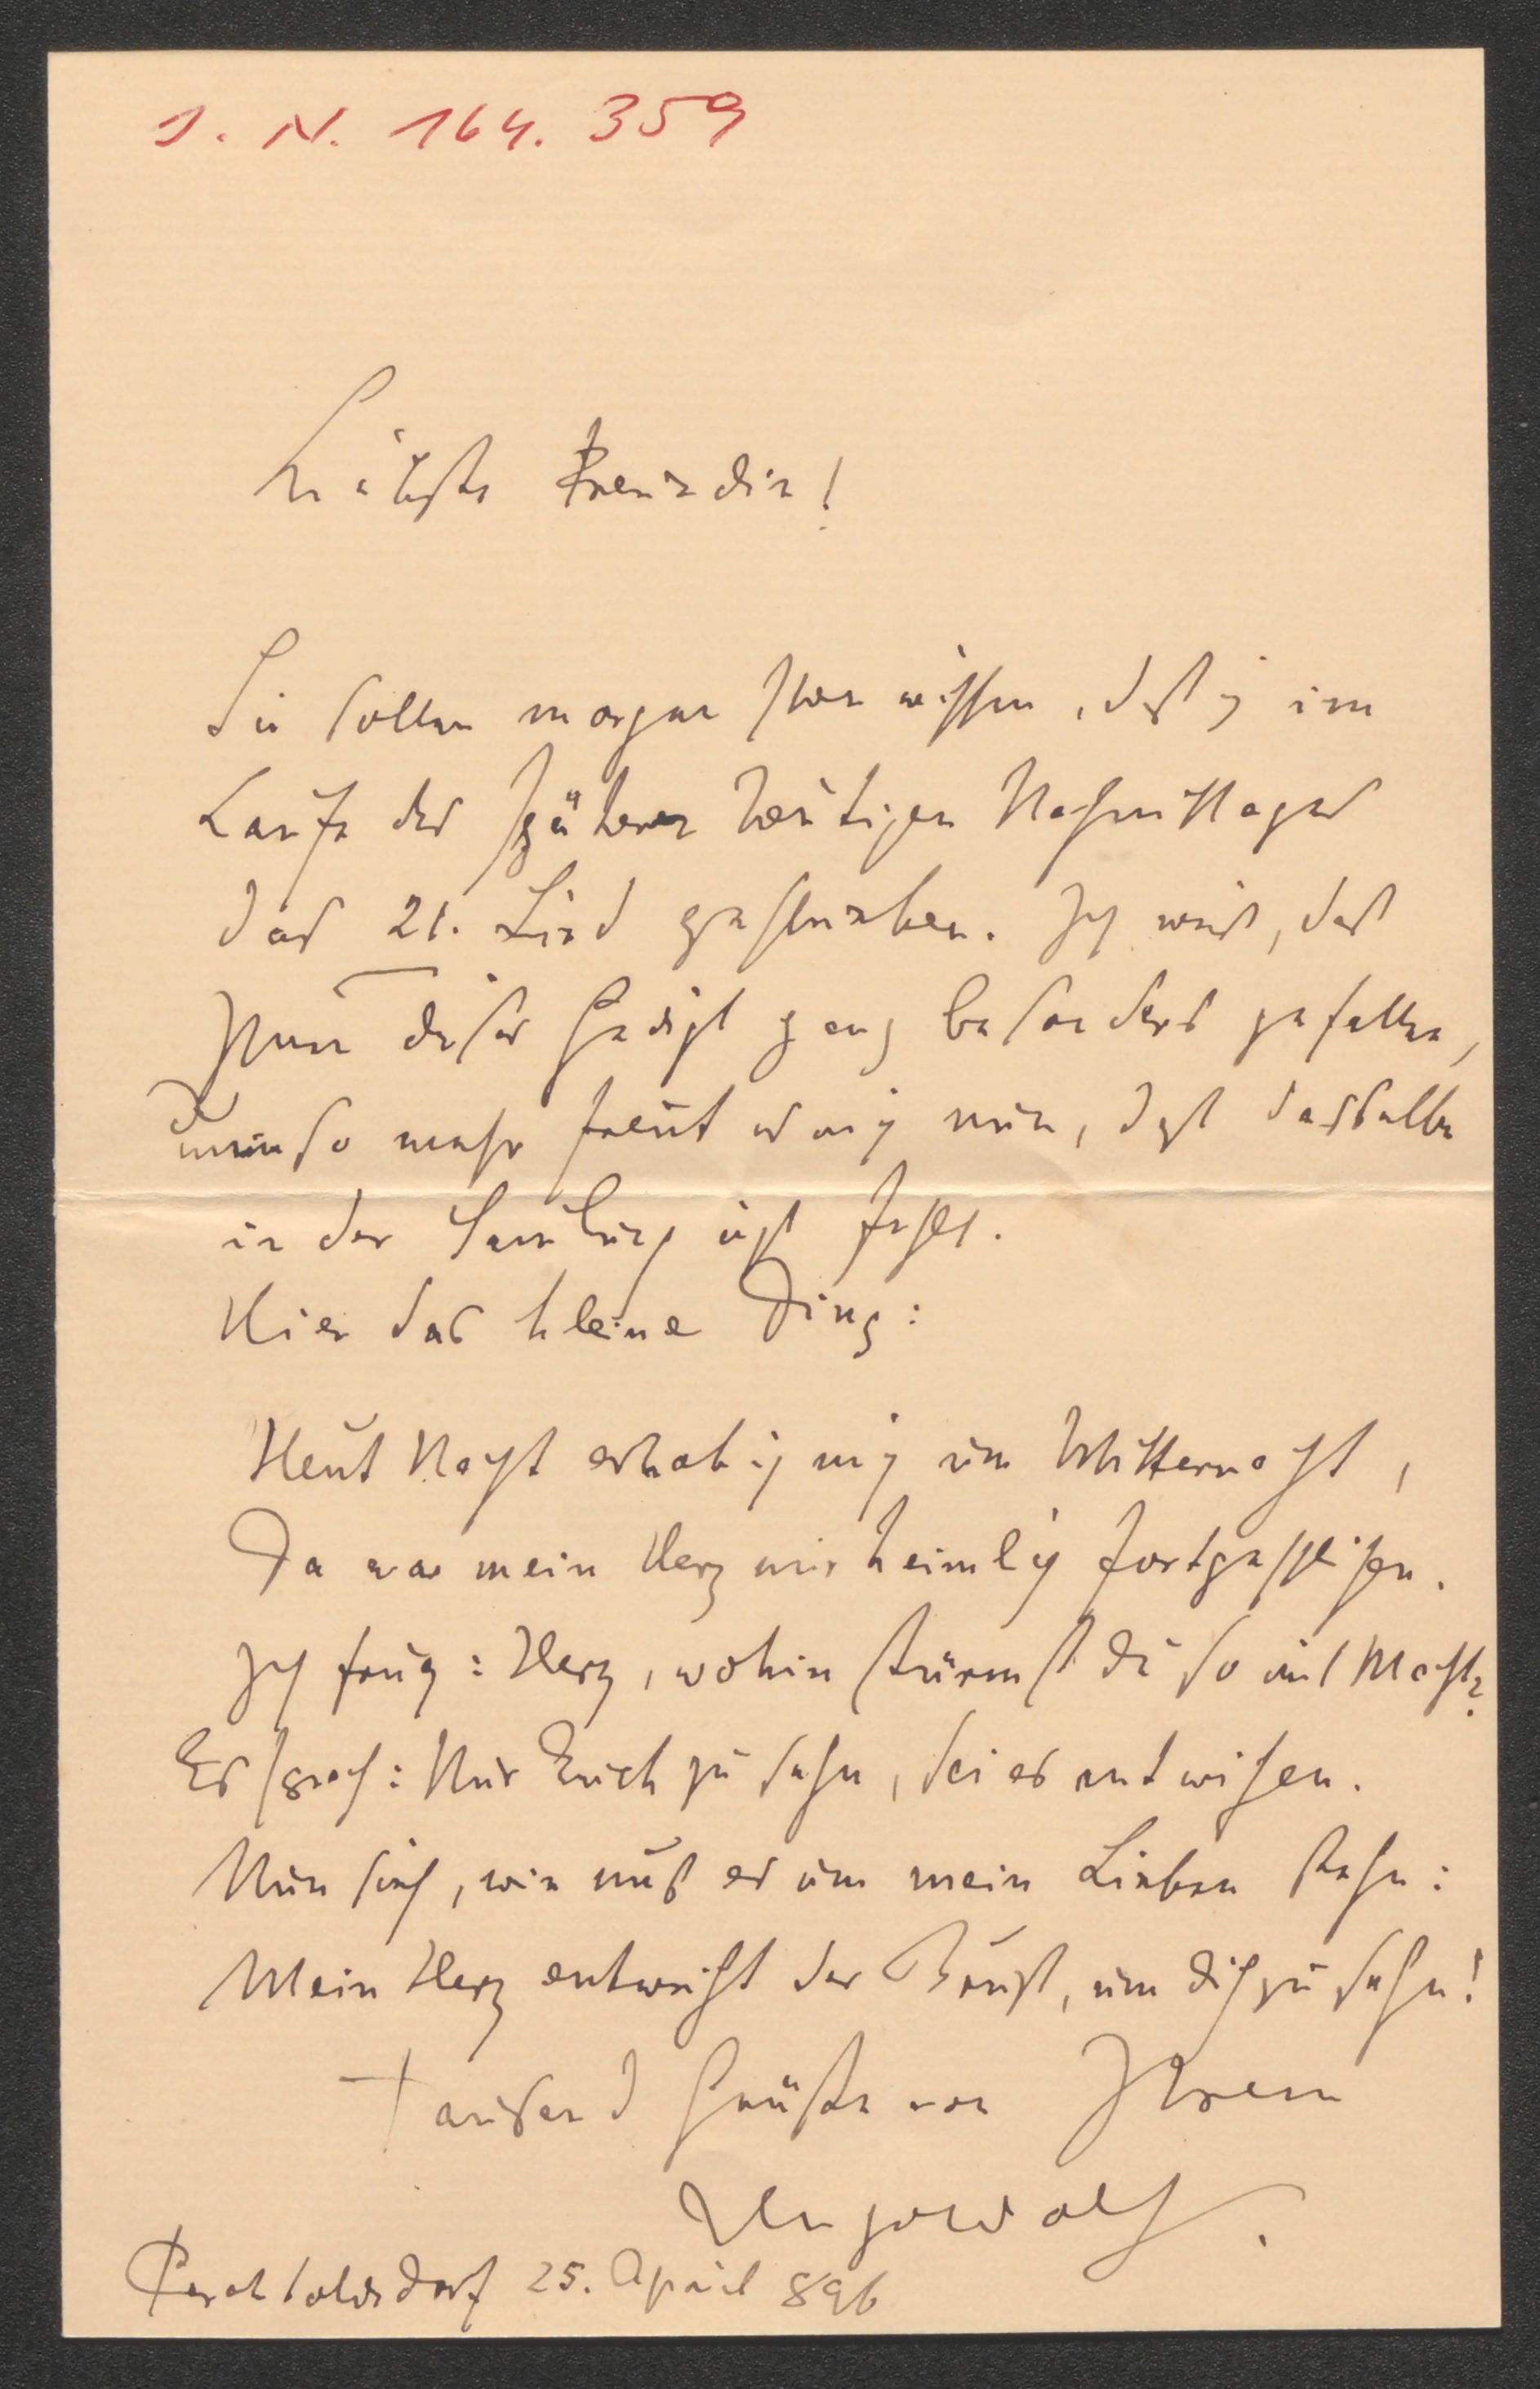 I. N. 164.359
Liebste Freundin!
Sie sollen morgen schon wissen, daß ich im
Laufe des späteren heutigen Nachmittages
das 21. Lied geschrieben. Ich weiß, daß
Ihnen dieses Gedicht ganz besonders gefallen,
umso mehr freut es mich nun, daß dasselbe
in der Samlung nicht fehlt.
Hier das kleine Ding:
Heut Nacht erhob ich mich um Mitternacht,
Da war mein Herz mir heimlich fortgeschlichen.
Ich frug: Herz, wohin stürmst du so mit Macht?
Es sprach: Nur Euch zu sehn, sei es entwichen.
Nun sieh, wie muß es um mein Lieben stehn:
Mein Herz entweicht der Brust, um dich zu sehn!
Tausend Grüße von Ihrem
Hugo Wolf.
Perchtoldsdorf 25. April 896